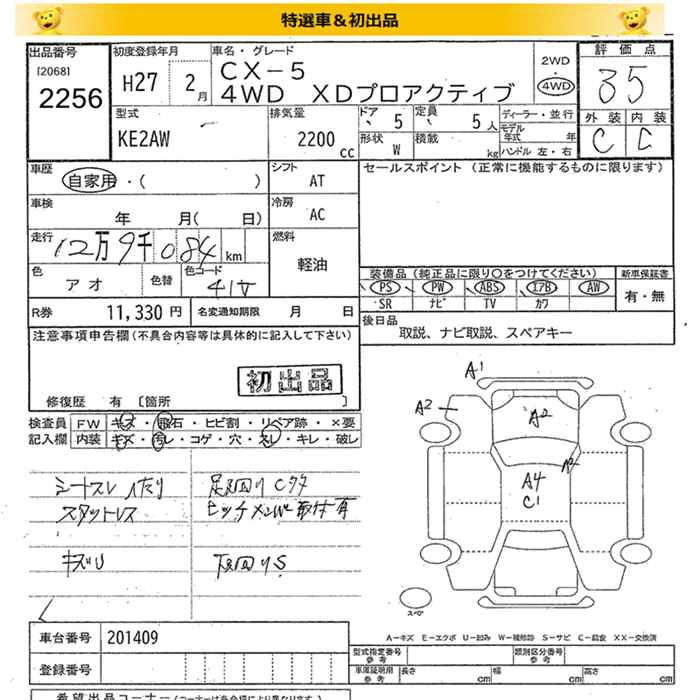 特選車＆初出品
出品番号
[2068]
2256
初度登録年月
H27 2月
車名・グレード
CX-5
4WD XDプロアクティブ
2WD
4WD
評価点
35
外装 内装
C C
型式
KE2AW
排気量
2200cc
ドア 5
定員 5人
形状 W
積載 kg
ディーラー・並行
モデル年式 年
ハンドル 左・右
車歴
自家用・( )
シフト
AT
セールスポイント (正常に機能するものに限ります)
車検
年 月( 日)
冷房
AC
走行
12万9千084km
燃料
軽油
色
アオ
色替
色コード
41V
装備品 (純正品に限り○をつけてください)
PS PW ABS エアB AW
SR ナビ TV カワ
新車保証書
有・無
R券 11,330円
名変通知期限 月 日
後日品
取説、ナビ取説、スペアキー
注意事項申告欄(不具合内容等は具体的に記入して下さい)
初出品
修復歴 有 [箇所
検査員記入欄
FW キズ・飛石・ヒビ割・リペア跡・×要
内装 キズ・汚レ・コゲ・穴・スレ・キレ・破レ
シートスレ
スタットレス
キズU
足回りC
取付有
下回りS
A1
A2
A2
A2
A4
C1
スペア
A-キズ E-エクボ U-凹み W-補修跡 S-サビ C-腐食 XX-交換済
車台番号 201409
登録番号
型式指定番号 参考
類別区分番号 参考
車庫証明用 参考
長さ cm
幅 cm
高さ cm
希望出品コーナー